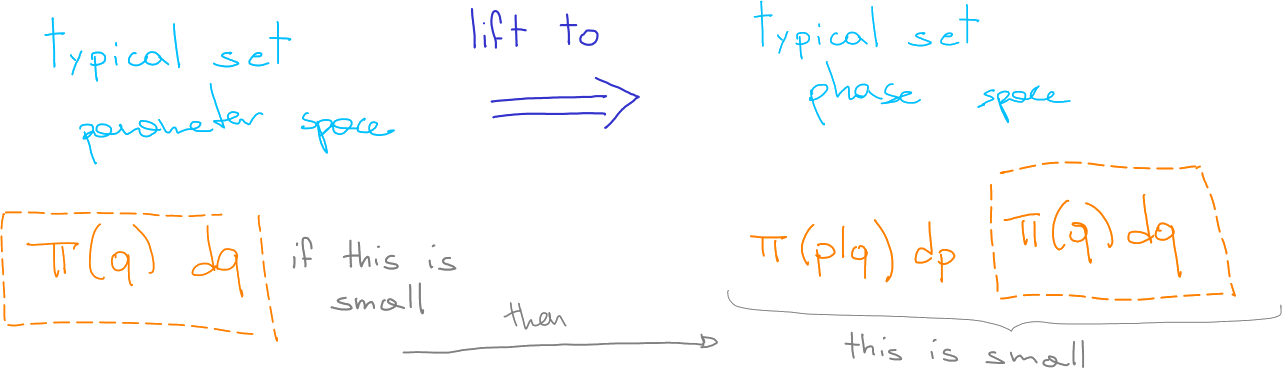 typical set
parameter space
lift to
typical set
phase space
π(q) dq
if this is
small
then
π(p|q) dp π(q) dq
this is small